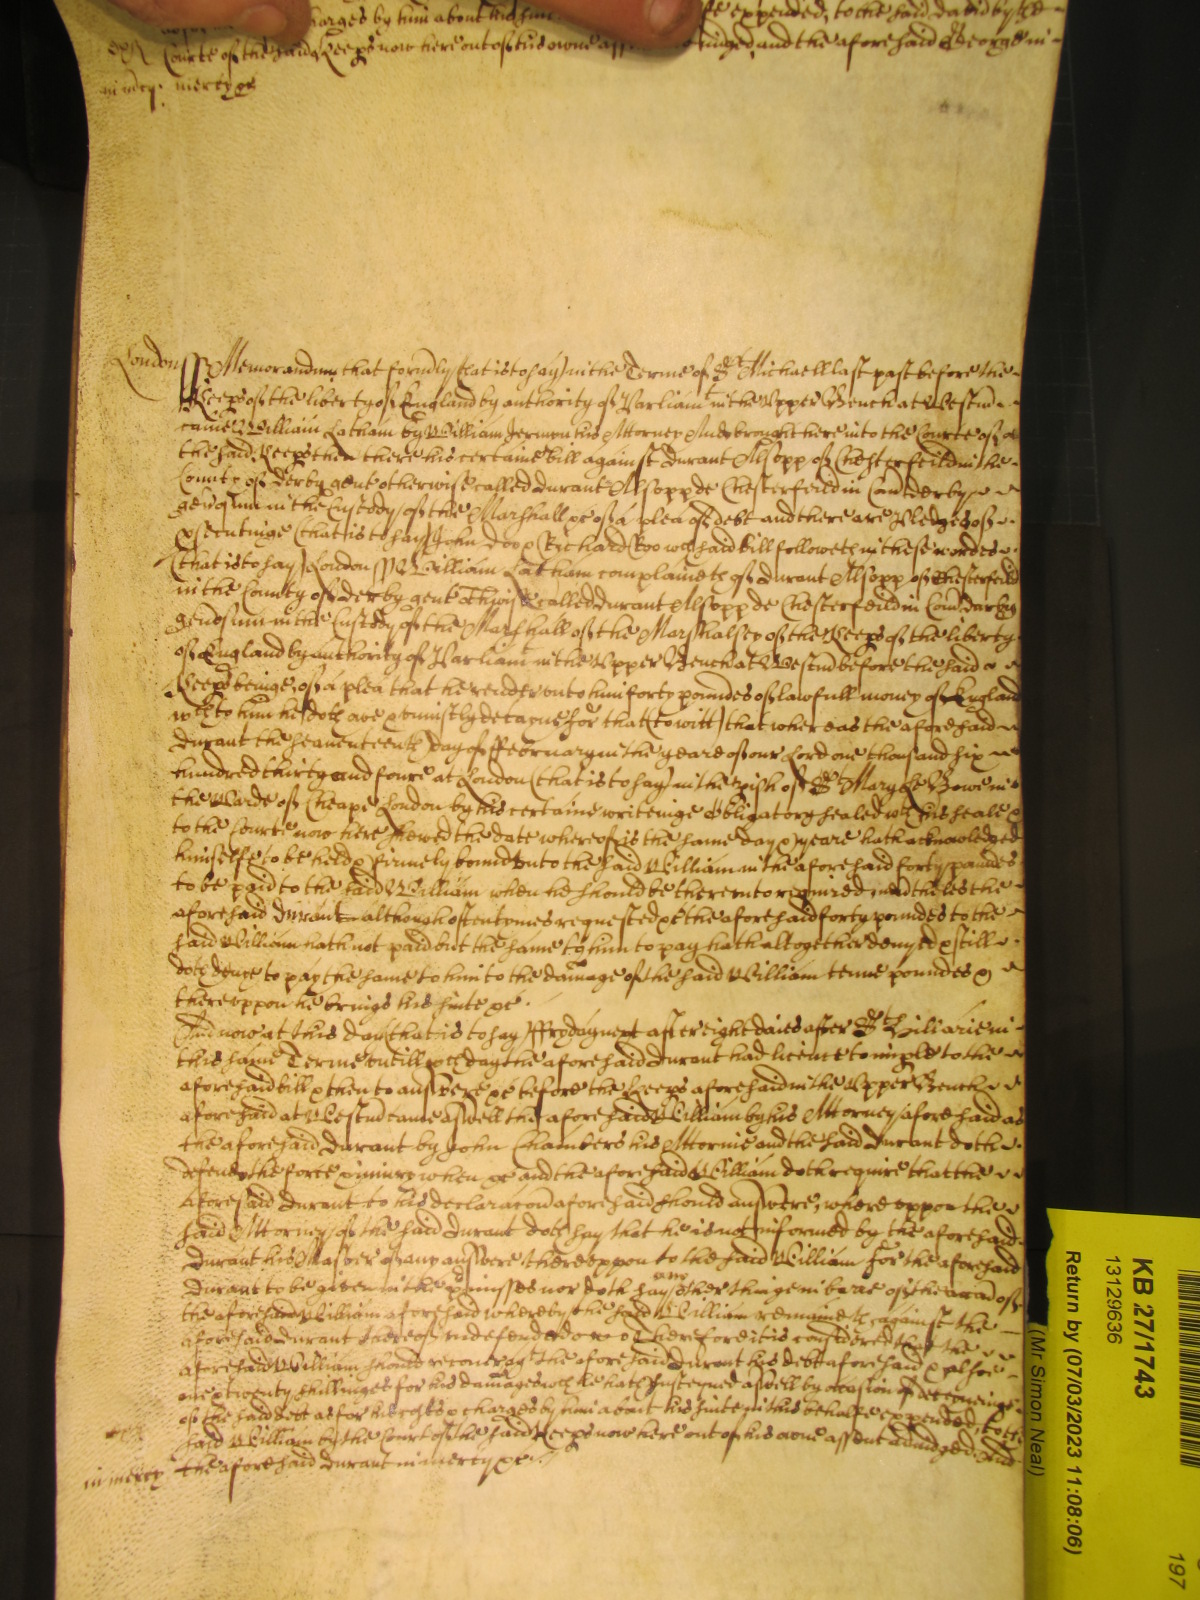 charges by him about his suite expended, to the said David by the
Courte of the said Keeps now here out of his owne adjudged, and the aforesaid George in
in mercy mercy &c
London ss Memorandum that formerly (that is to say) in the Terme of St Michaell last past before the
Keeps of the liberty of England by authority of Parliamt in the Upper Bench at Westm
came William Latham by William Jermon his Attorney And brought here into the Courte of
the said Keeps then there his certaine bill against Durant Allsopp of Chesterfeild in the
County of Derby gent otherwise called Durant Allsopp de Chesterfeild in Com Derby
generosum in the Custody of the Marshall &c of a plea of debt and there are Pledges of
psecutinge (that is to say) John Doo & Richard Roo wch said bill followeth in these wordes
(that is to say) London ss William Latham complaineth of Durant Allsopp of Chesterfeild
in the County of Derby gent othwise called Durant Allsopp de Chesterfeild in Com Darby
generosum in the Custody of the Marshall of the Marshalsey of the Keeps of the liberty
of England by authority of Parliamt in the Upper Bench at Westm before the said
Keeps beinge, of a plea that he render unto him forty poundes of lawfull money of England
wch to him he doth owe & uniustly detayne For that (to witt) that whereas the aforesaid
Durant the seaventeenth day of February in the yeare of our Lord one thousand six
hundred thirty and foure at London (that is to say) in the pish of St Mary le Bowe in
the Warde of Cheape London by his certaine writeinge obligatory sealed wth his seale &
to the Courte now here shewed the date whereof is the same day & yeare hath acknowledged
himselfe to be held & firmely bound unto the said William in the aforesaid forty poundes
to be paid to the said William when he should be thereunto required, neverthelesthe
aforesaid Durant although oftentymes requested &c the aforesaid forty poundes to the
said William hath not paid but the same to him to pay hath altogether denyed & still
doth denie to pay the same to him to the damage of the said William tenne poundes &
thereuppon he brings his suite &c
And now at this day (that is to say) Fryday next after eight daies after St Hillarie in
this same Terme untill wch day the aforesaid Durant had licence to imple to the
aforesaid bill & then to answere &c before the Keeps aforesaid in the Upper Bench
aforesaid at Westm came aswell the aforesaid William by his Attorney aforesaid as
the aforesaid Durant by John Chambers his Attornie and the said Durant doth
defend the force & iniury when &c and the aforesaid William doth require that the
aforesaid Durant to his declaracon aforesaid should answere, whereuppon the
said Attorney of the said Durant doth say that he is not informed by the aforesaid
Durant his Master of any answere thereuppon to the said William for the aforesaid
Durant to be given in the premisses nor doth say any other thinge in barre of the accon of
the aforesaid William aforesaid whereby the said William remaineth against the
aforesaid Durant thereof undefended &c Therefore it is considered that the
aforesaid William should recover agt the aforesaid Durant his debt aforesaid & alsoe
one & twenty shillinges for his damages wch he hath susteyned aswell by occasion of deteyneinge
of the said debt as for his costs & charges by him about his suite in this behalfe expended, to the
said William by the Court of the said Keeps now here out of his owne assent adiudged. And
in mercy the aforesaid Durant in mercy &c
KB 27/1743
13129636
Return by (07/03/2023 11:08:06)
(Mr Simon Neal)
197